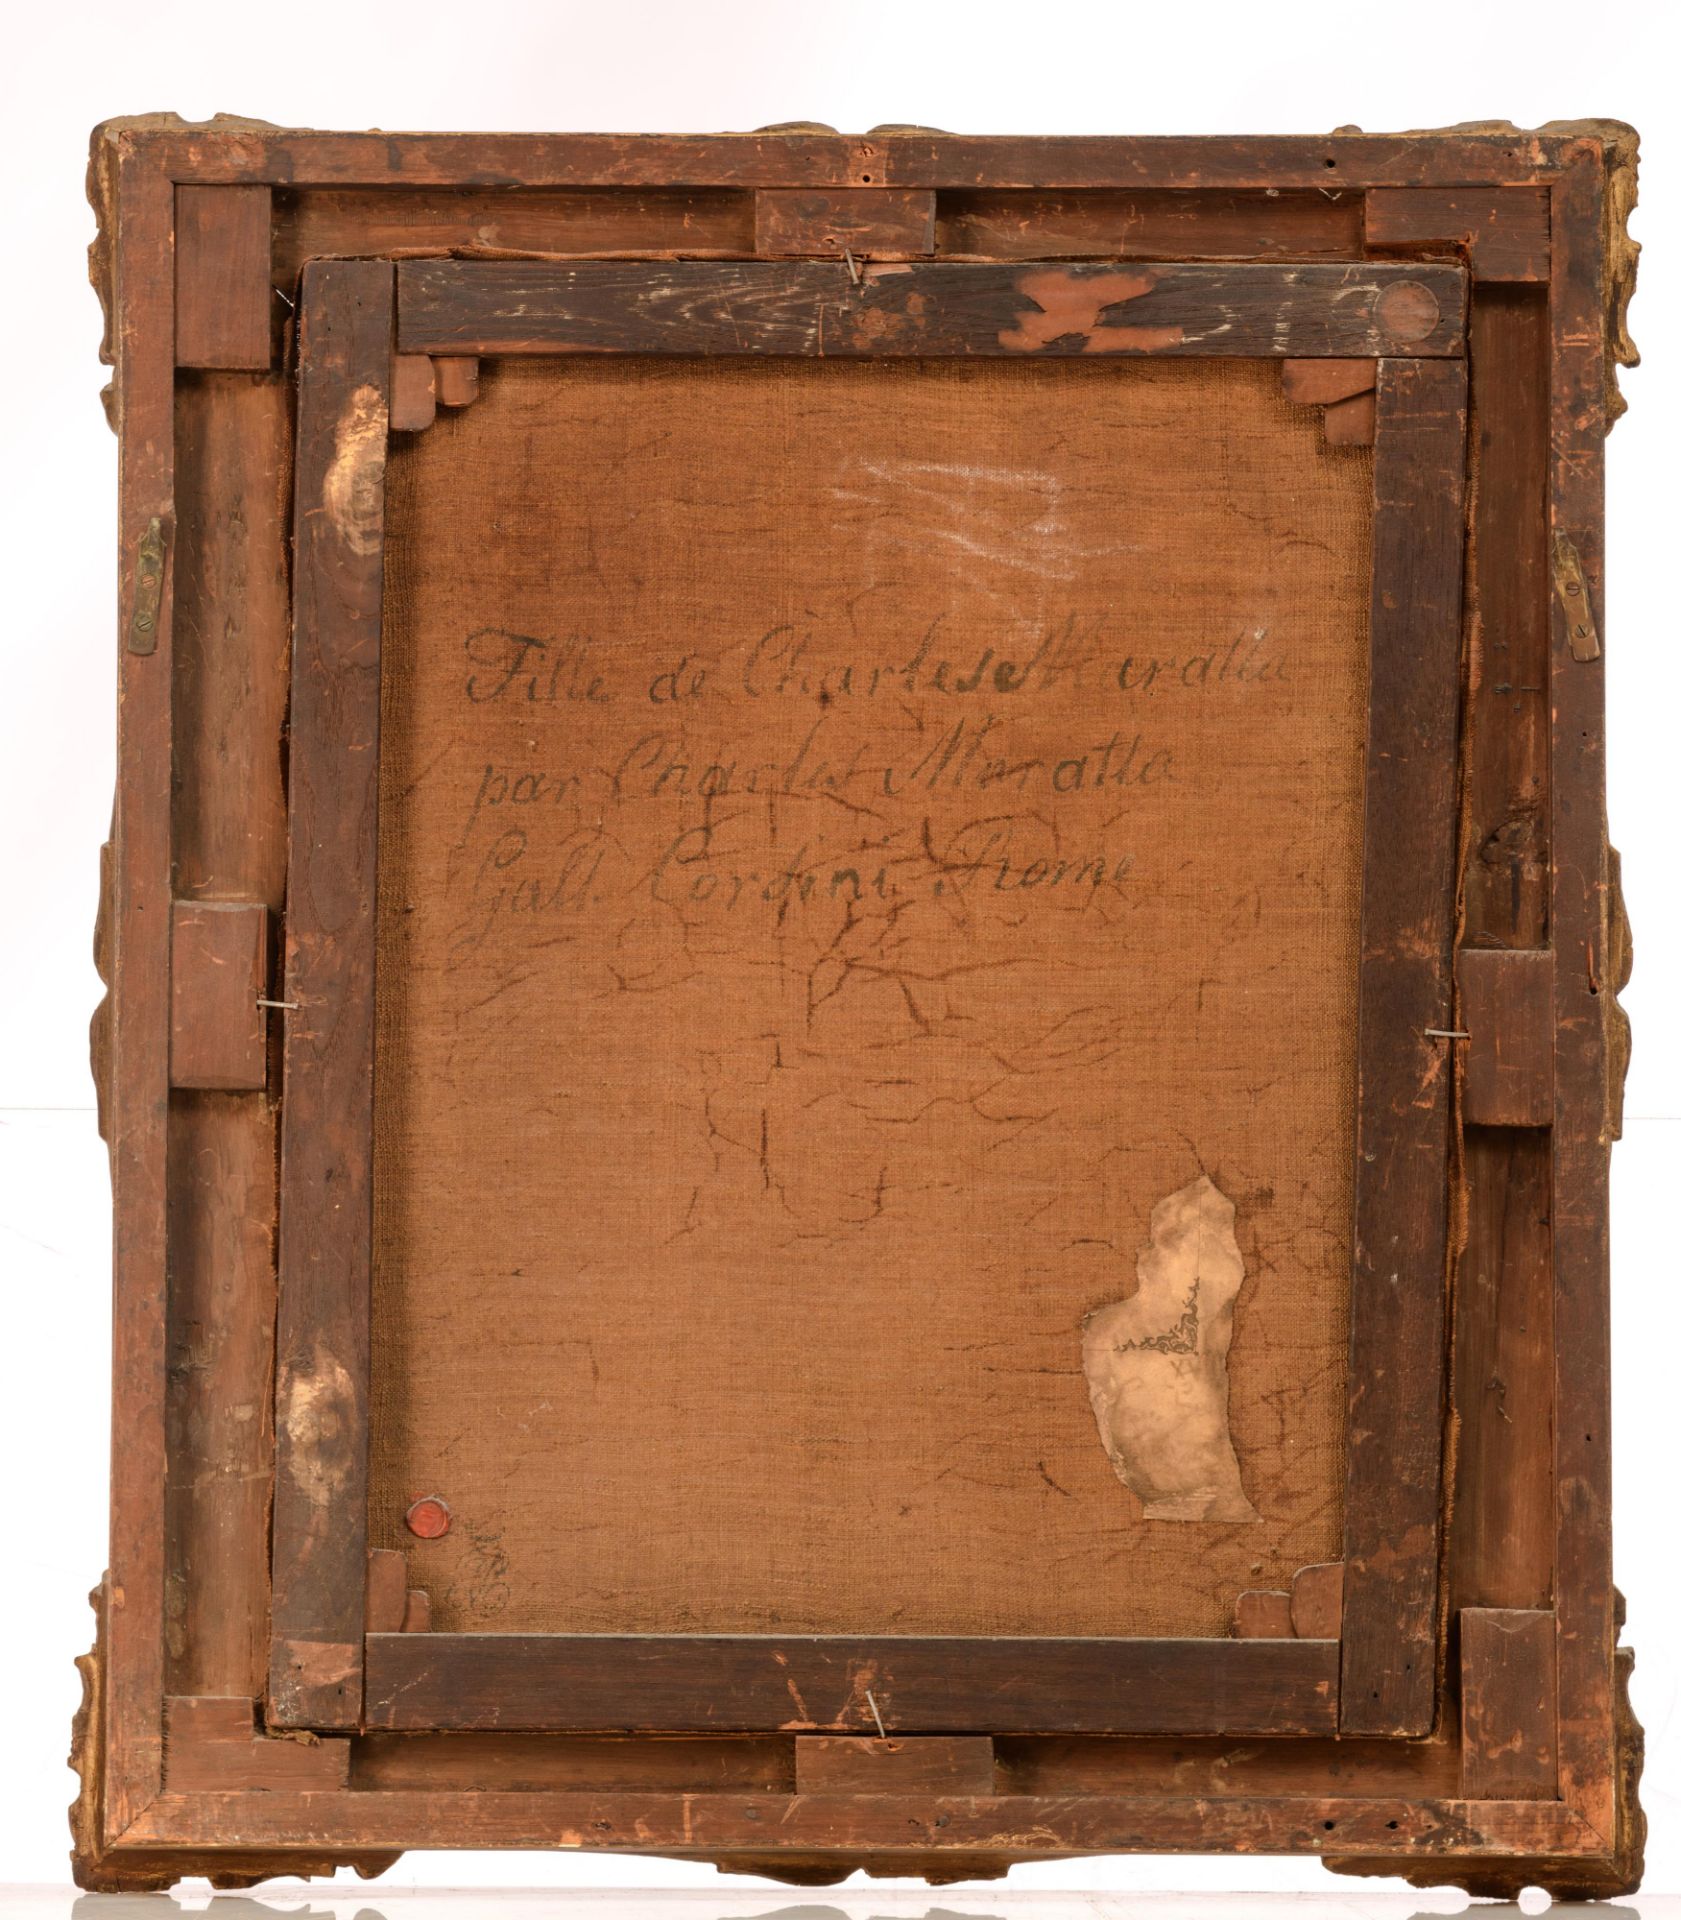 Fille de Charles Maratta
par Charles Moratta
Gall. Corsini Rome